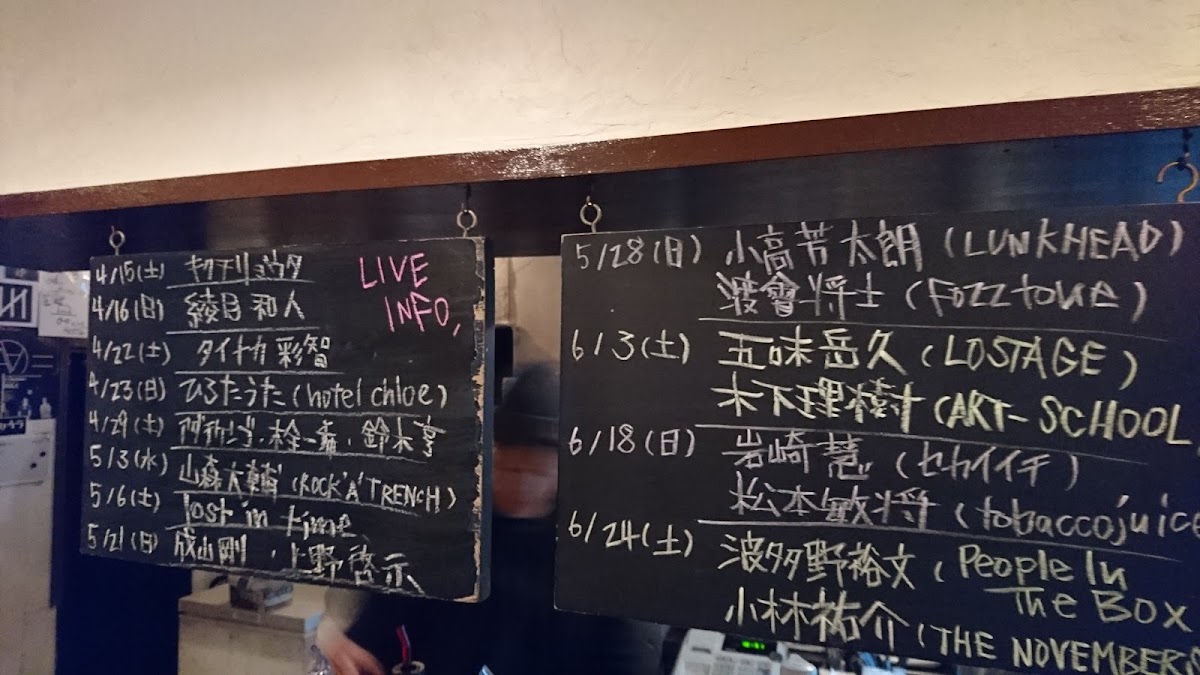 LIVE
INFO,
4/15(土) キクチリョウタ
4/16(日) 綾目和人
4/22(土) タイナカ彩智
4/23(日) ひろたうた(hotel chloe)
4/29(土) 鈴木亨
5/3(水) 山森大輔(ROCK'A'TRENCH)
5/6(土) lost in time
5/21(日) 成山剛・上野啓示
5/28(日) 小高芳太朗(LUNKHEAD)
渡會将士(Fozztone)
6/3(土) 五味岳久(LOSTAGE)
木下理樹(ART-SCHOOL
6/18(日) 岩崎慧(セカイイチ)
松本敏将(tobaccojuice
6/24(土) 波多野裕文(People In
The Box
小林祐介(THE NOVEMBERS